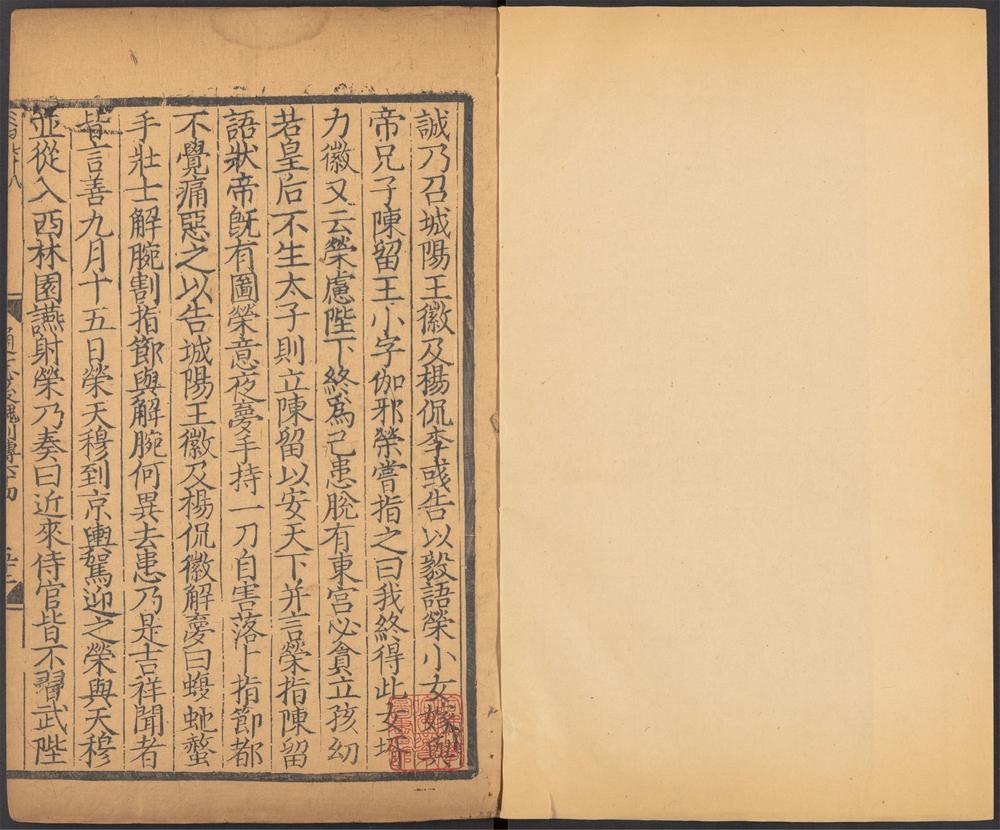 誠乃召城陽王徽及楊侃李彧告以毅語榮小女嫁與
帝兄子陳留王小字伽邪榮嘗指之曰我終得此女壻
力徽又云榮慮陛下終爲己患脫有東宮必貪立孩幼
若皇后不生太子則立陳留以安天下并言榮指陳留
語狀帝旣有圖榮意夜夢手持一刀自害落十指節都
不覺痛惡之以告城陽王徽及楊侃徽解夢曰蝮虵螫
手壯士解腕割指節與解腕何異去患乃是吉祥聞者
皆言善九月十五日榮天穆到京輿駕迎之榮與天穆
並從入西林園讌射榮乃奏曰近來侍官皆不習武陛